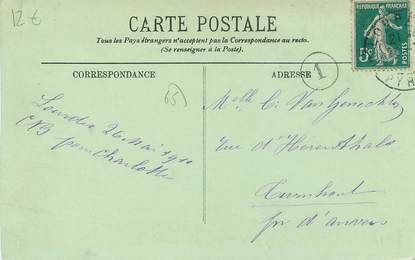 12 €
CARTE POSTALE
Tous les Pays étrangers n'acceptent pas la Correspondance au recto.
(Se renseigner à la Poste).
REPUBLIQUE FRANÇAISE
5c
CORRESPONDANCE
ADRESSE
1
65
Lourdes 26 Mai 1911
from Charlotte
Melle C. Van Genechten
Rue d'Herenthals
Turnhout
pr d'anvers